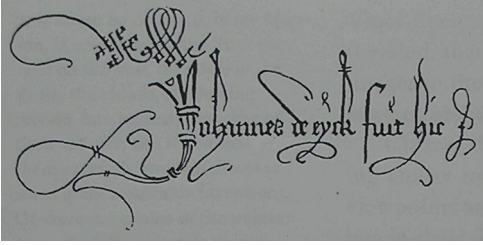 Johannes de eyck fuit hic